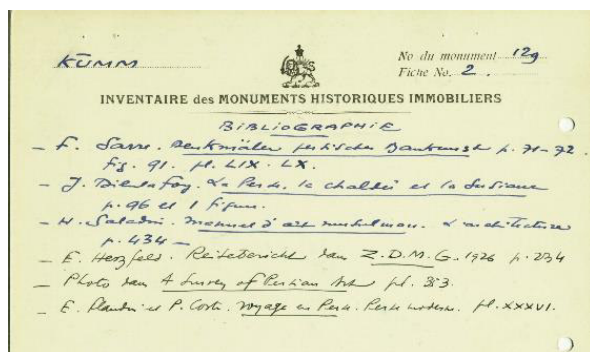 KŪMM
No du monument 129
Fiche No. 2.
INVENTAIRE des MONUMENTS HISTORIQUES IMMOBILIERS
BIBLIOGRAPHIE
- F. Sarre. Denkmäler persischer Baukunst p. 71-72
fig. 91. pl. LIX. LX.
- J. Dieulafoy. La Perse, la Chaldée et la Susiane
p. 96 et 1 figure.
- H. Saladin. Manuel d'art musulman. L'architecture
p. 434 -
- E. Herzfeld. Reisebericht dans Z.D.M.G. 1926 p. 234
- Photo dans A Survey of Persian Art pl. 353
- E. Flandin et P. Coste. Voyage en Perse. Perse moderne. pl. XXXVI.